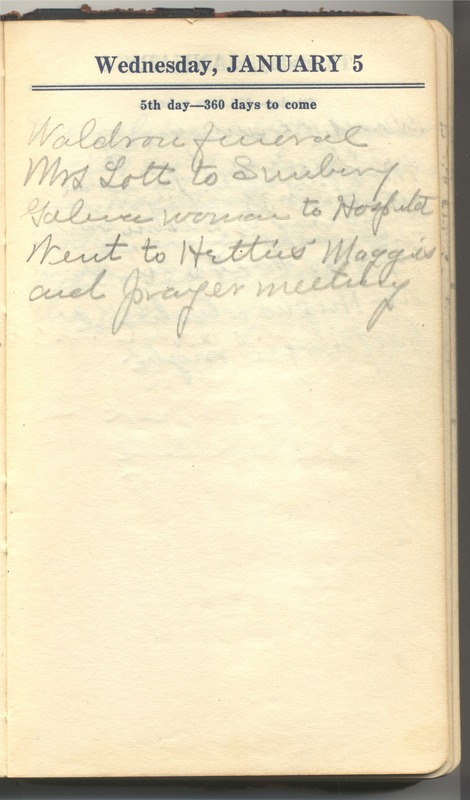 Wednesday, JANUARY 5
5th day—360 days to come
Waldron funeral
Mrs Lott to Sunbury
Galena woman to Hospital
Went to Hetties Maggies
and prayer meeting